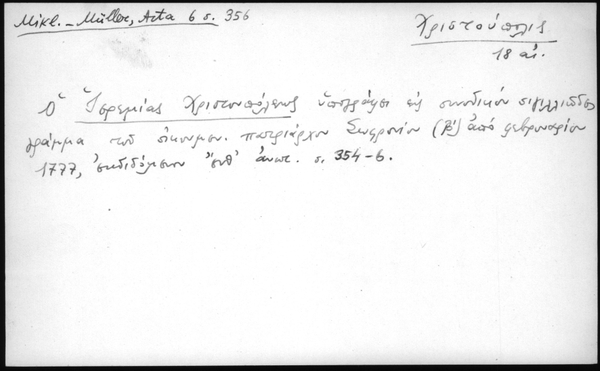 Mikl. – Müller, Acta 6 σ. 356
Χριστούπολις
18 αἰ.
Ὁ Ἱερεμίας Χριστουπόλεως ὑπογράφει εἰς συνοδικὸν σιγιλλιῶδες
γράμμα τοῦ οἰκουμεν. πατριάρχου Σωφρονίου (β΄) ἀπὸ φεβρουαρίου
1777, ἐκδιδόμενον αὐτ. σ. 354-6.